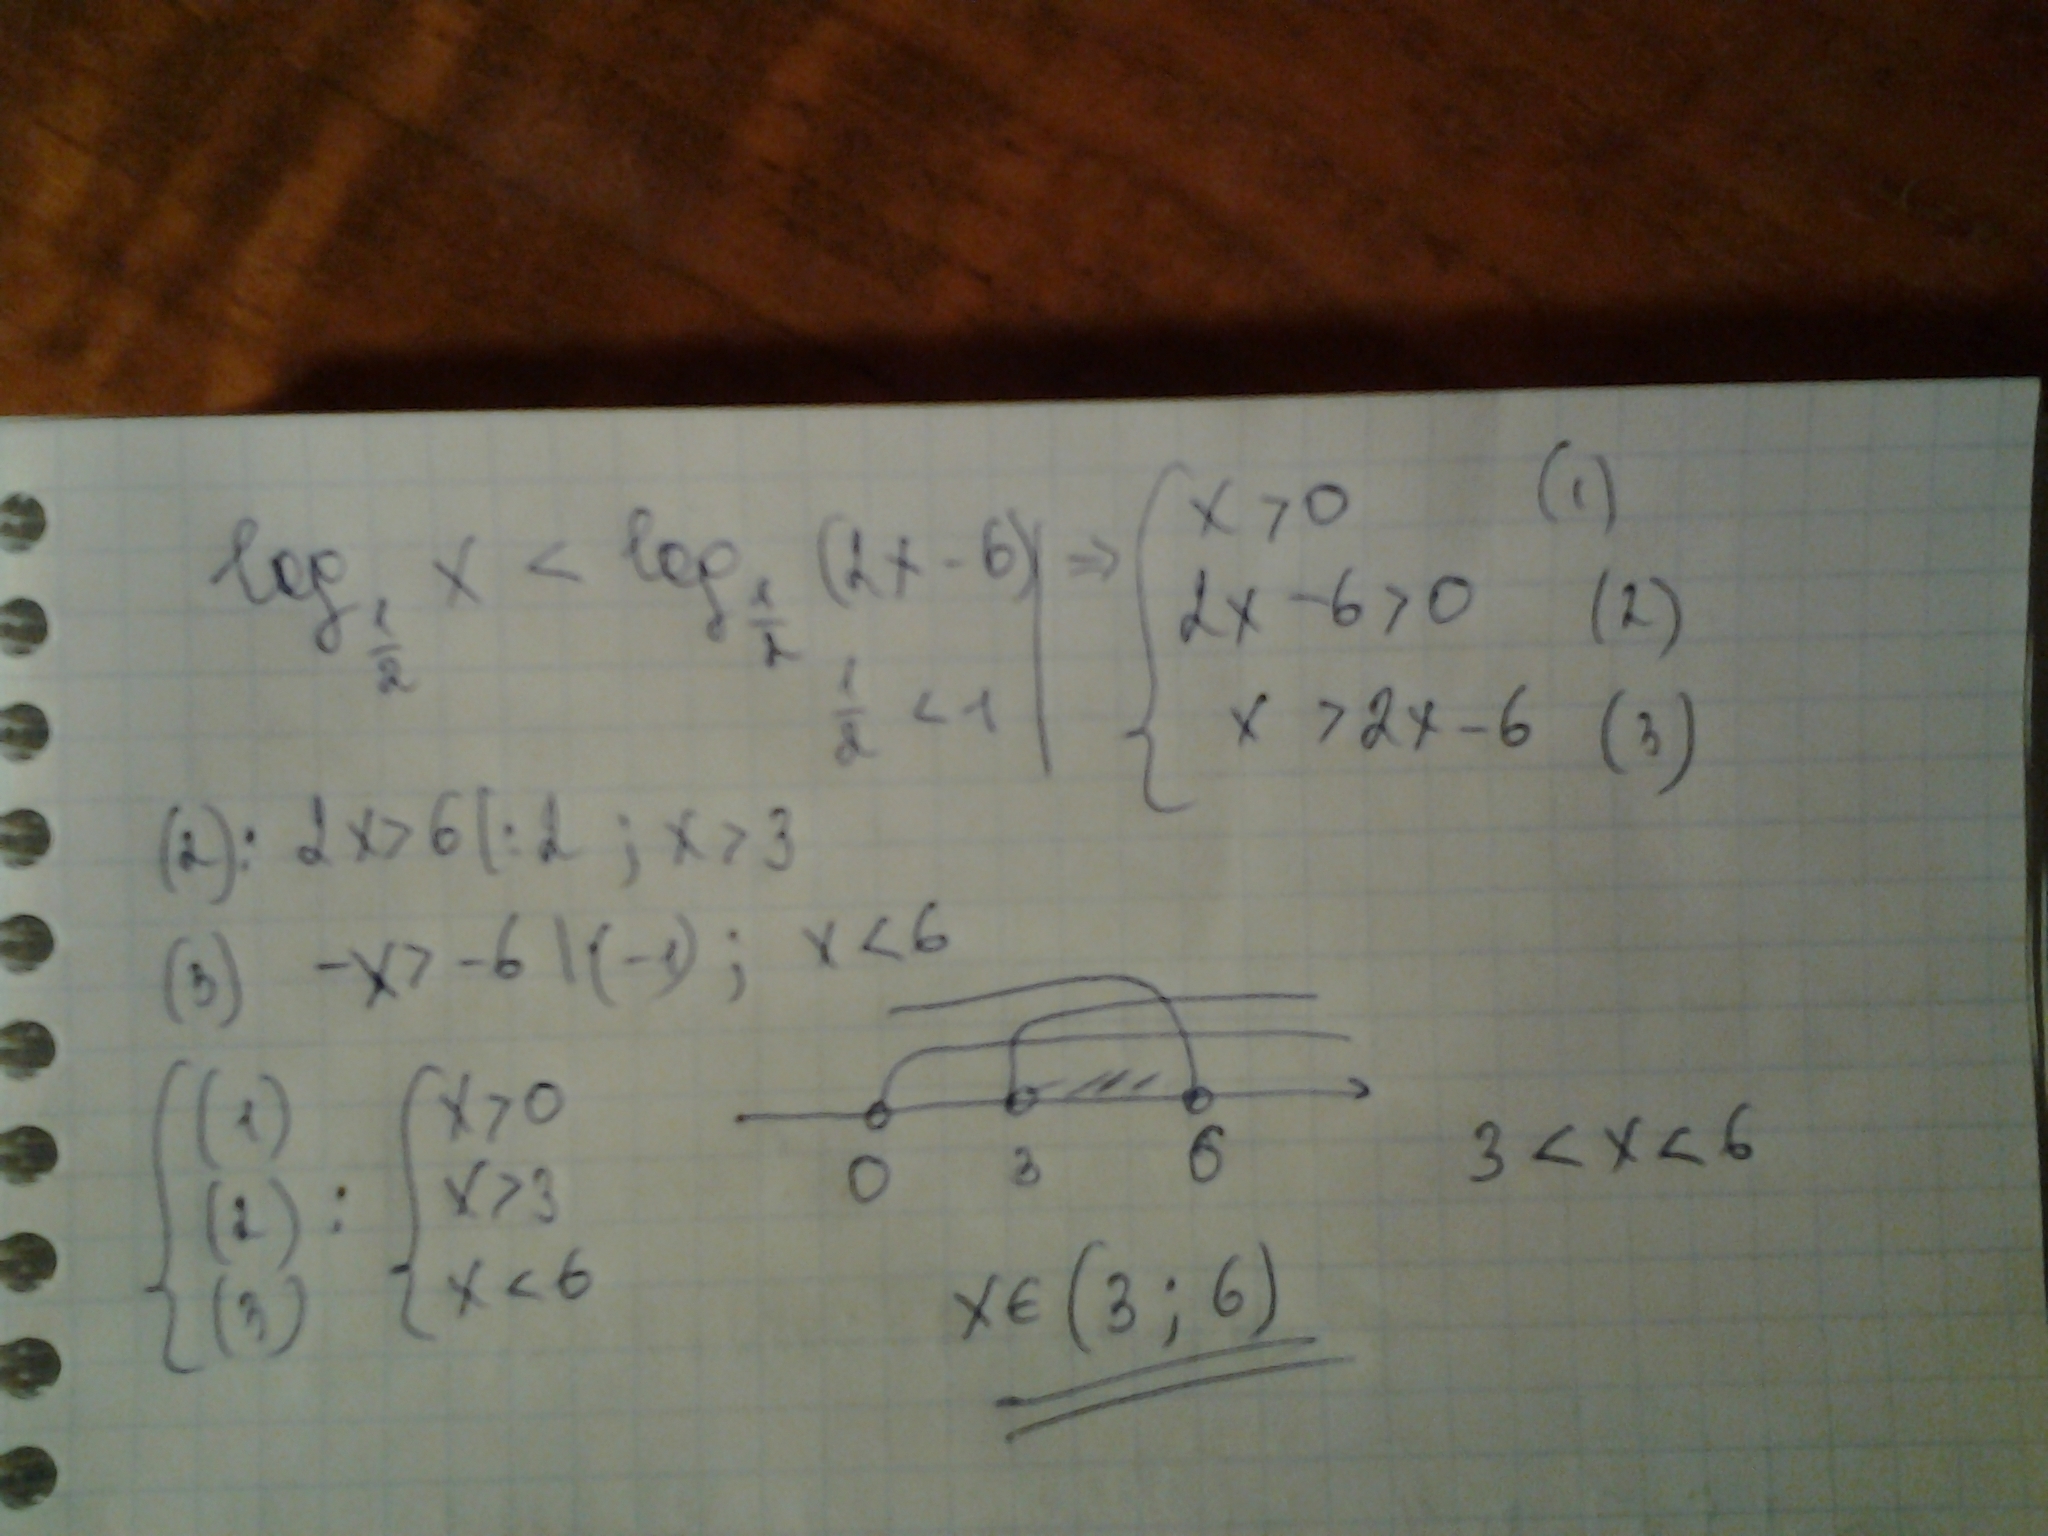 log_{1/2} x < log_{1/2} (2x-6) | ⇒ { x>0 (1)
2x-6>0 (2)
1/2 <1
x >2x-6 (3)
(2): 2x>6 |:2 ; x>3
(3) -x>-6 |·(-1) ; x<6
{ (1) (2) (3) : { x>0
x>3
x<6
0 3 6
3<x<6
x∈(3;6)